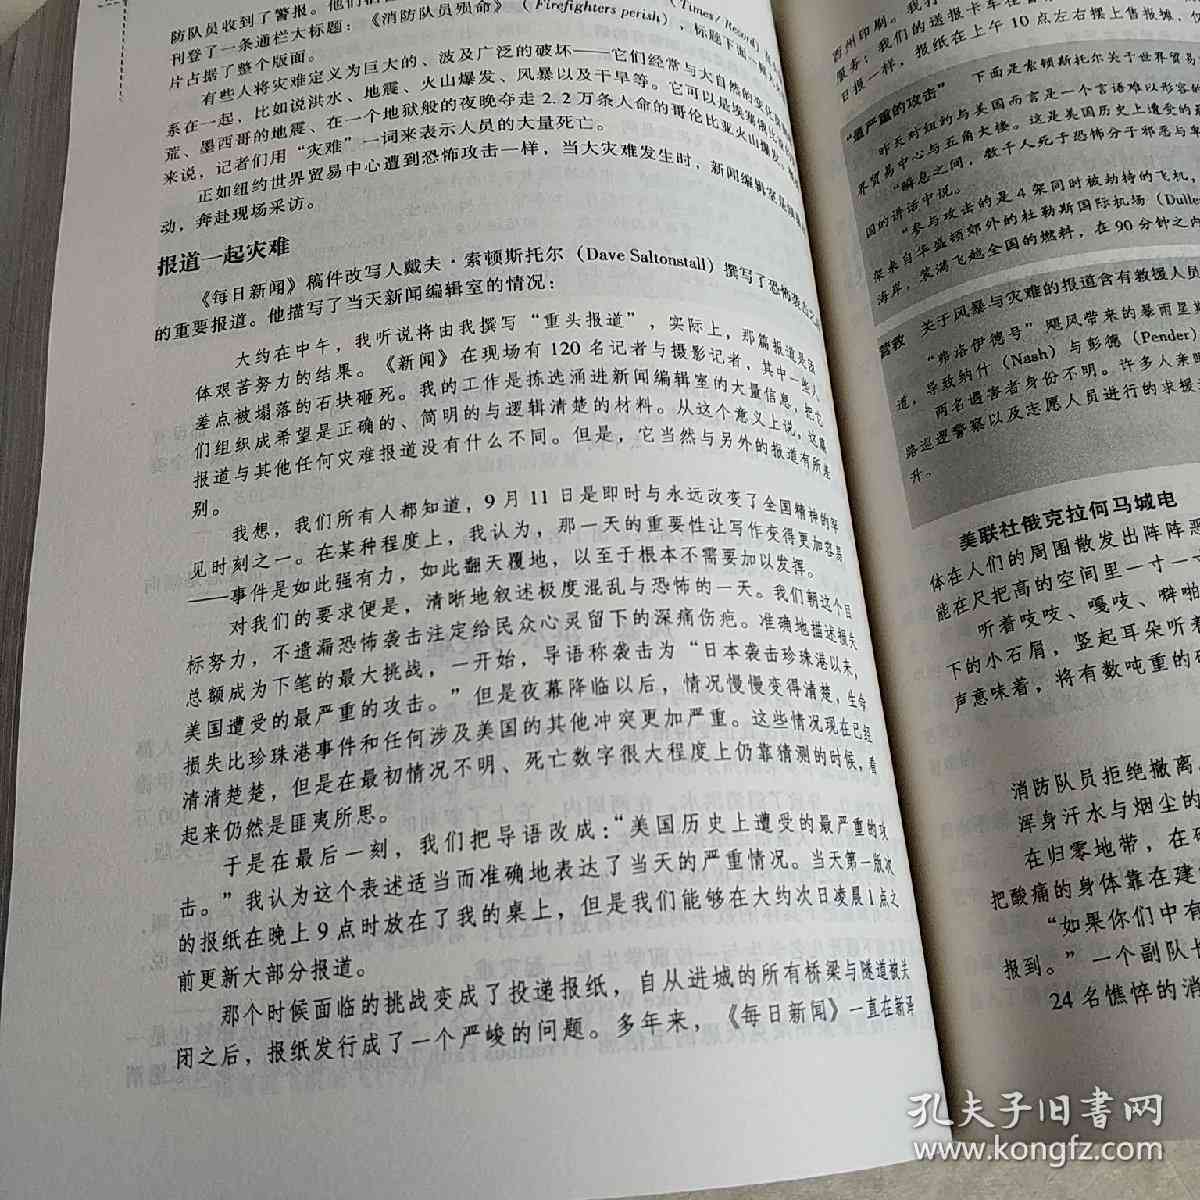 防队员收到了警报。他们
刊登了一条通栏大标题：《消防队员殒命》（Firefighters perish），标题下面一幅
片占据了整个版面。
有些人将灾难定义为巨大的、波及广泛的破坏——它们经常与大自然的变化
系在一起，比如说洪水、地震、火山爆发、风暴以及干旱等。它可以是埃塞俄比亚
荒、墨西哥的地震、在一个地狱般的夜晚夺走2.2万条人命的哥伦比亚火山爆发
来说，记者们用“灾难”一词来表示人员的大量死亡。
正如纽约世界贸易中心遭到恐怖攻击一样，当大灾难发生时，新闻编辑室
动，奔赴现场采访。
报道一起灾难
《每日新闻》稿件改写人戴夫·索顿斯托尔（Dave Saltonstall）撰写了恐怖袭击
的重要报道。他描写了当天新闻编辑室的情况：
大约在中午，我听说将由我撰写“重头报道”，实际上，那篇报道是
体艰苦努力的结果。《新闻》在现场有120名记者与摄影记者，其中一些人
差点被塌落的石块砸死。我的工作是拣选涌进新闻编辑室的大量信息，把它
们组织成希望是正确的、简明的与逻辑清楚的材料。从这个意义上说，这篇
报道与其他任何灾难报道没有什么不同。但是，它当然与另外的报道有所差
别。
我想，我们所有人都知道，9月11日是即时与永远改变了全国精神的罕
见时刻之一。在某种程度上，我认为，那一天的重要性让写作变得更加容易
——事件是如此强有力，如此翻天覆地，以至于根本不需要加以发挥。
对我们的要求便是，清晰地叙述极度混乱与恐怖的一天。我们朝这个目
标努力，不遗漏恐怖袭击注定给民众心灵留下的深痛伤疤。准确地描述损失
总额成为下笔的最大挑战，一开始，导语称袭击为“日本袭击珍珠港以来，
美国遭受的最严重的攻击。”但是夜幕降临以后，情况慢慢变得清楚，生命
损失比珍珠港事件和任何涉及美国的其他冲突更加严重。这些情况现在已经
清清楚楚，但是在最初情况不明、死亡数字很大程度上仍靠猜测的时候，看
起来仍然是匪夷所思。
于是在最后一刻，我们把导语改成：“美国历史上遭受的最严重的攻
击。”我认为这个表述适当而准确地表达了当天的严重情况。当天第一版次
的报纸在晚上9点时放在了我的桌上，但是我们能够在大约次日凌晨1点之
前更新大部分报道。
那个时候面临的挑战变成了投递报纸，自从进城的所有桥梁与隧道被关
闭之后，报纸发行成了一个严峻的问题。多年来，《每日新闻》一直在新泽
西州印刷。我打
服务：我们的送报卡车在
日报一样，报纸在上午10点左右摆上售报摊，
“最严重的攻击” 下面是索顿斯托尔关于世界贸易
昨天对纽约与美国而言是一个言语难以形容的
界贸易中心与五角大楼。这是美国历史上遭受的最
“瞬息之间，数千人死于恐怖分子邪恶与卑
国的讲话中说。
“参与攻击的是4架同时被劫持的飞机，
架来自华盛顿郊外的杜勒斯国际机场（Dulle
海岸，装满飞越全国的燃料，在90分钟之内
营救 关于风暴与灾难的报道含有救援人员
“弗洛伊德号”飓风带来的暴雨显
道，导致纳什（Nash）与彭德（Pender）
两名遇害者身份不明。许多人乘
路巡逻警察以及志愿人员进行的求援
升。
美联社俄克拉何马城电
体在人们的周围散发出阵阵恶
能在尺把高的空间里一寸一
听着吱吱、嘎吱、噼啪
下的小石屑，竖起耳朵听着
声意味着，将有数吨重的
消防队员拒绝撤离。
浑身汗水与烟尘的
在归零地带，在
把酸痛的身体靠在建
“如果你们中有
报到。”一个副队长
24名憔悴的消
孔夫子旧书网
www.kongfz.com